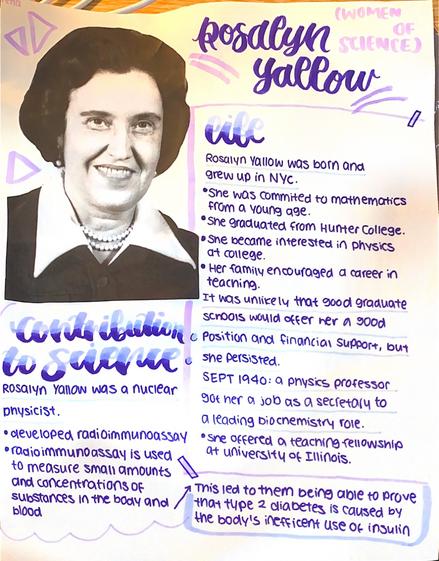 Rosalyn
Yallow
(WOMEN
OF
SCIENCE)
life
Rosalyn Yallow was born and
grew up in NYC.
•She was commited to mathematics
from a young age.
•She graduated from Hunter College.
•She became interested in physics
at college.
•Her family encouraged a career in
teaching.
It was unlikely that good graduate
schools would offer her a good
Position and financial support, but
she persisted.
SEPT 1940: a physics professor
got her a job as a secretary to
a leading biochemistry role.
•she offered a teaching fellowship
at university of Illinois.
Contribution
to Science
Rosalyn Yallow was a nuclear
physicist.
•developed radioimmunoassay
•radioimmunoassay is used
to measure small amounts
and concentrations of
substances in the body and
blood
This led to them being able to prove
that type 2 diabetes is caused by
the body's inefficent use of insulin